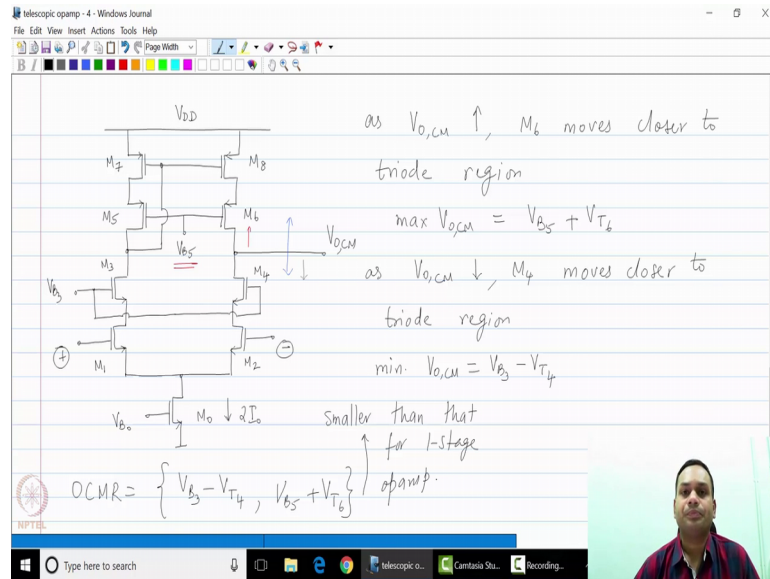 telescopic opamp - 4 - Windows Journal
File Edit View Insert Actions Tools Help
Page Width
B I
VDD
M7
M8
M5
M6
VB5
VO,CM
M3
M4
VB3
+
−
M1
M2
VB0
M0 ↓ 2I0
OCMR = { VB3 − VT4 , VB5 + VT6 }
as VO,CM ↑, M6 moves closer to
triode region
max VO,CM = VB5 + VT6
as VO,CM ↓, M4 moves closer to
triode region
min. VO,CM = VB3 − VT4
smaller than that
for 1-stage
opamp.
NPTEL
Type here to search
telescopic o...
Camtasia Stu...
Recording...